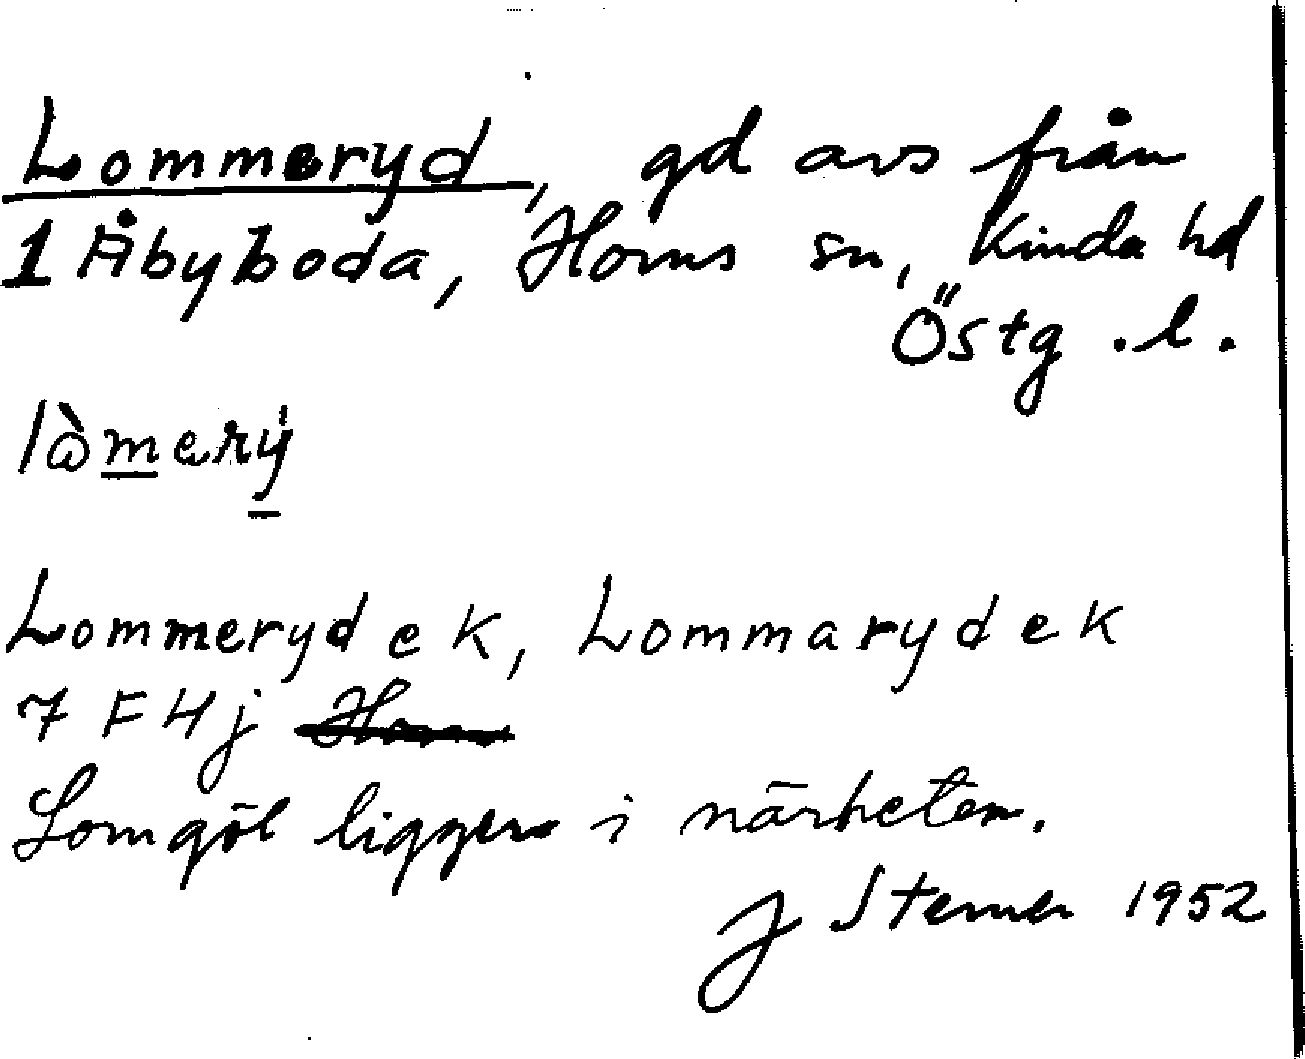 Lommeryd, gd avs från
1 Åbyboda, Horns sn, Kinda hd
Östg.l.
lòmerý
Lommeryd ek, Lommaryd ek
7 F4j
Lomgöl ligger i närheten.
J Sterner 1952